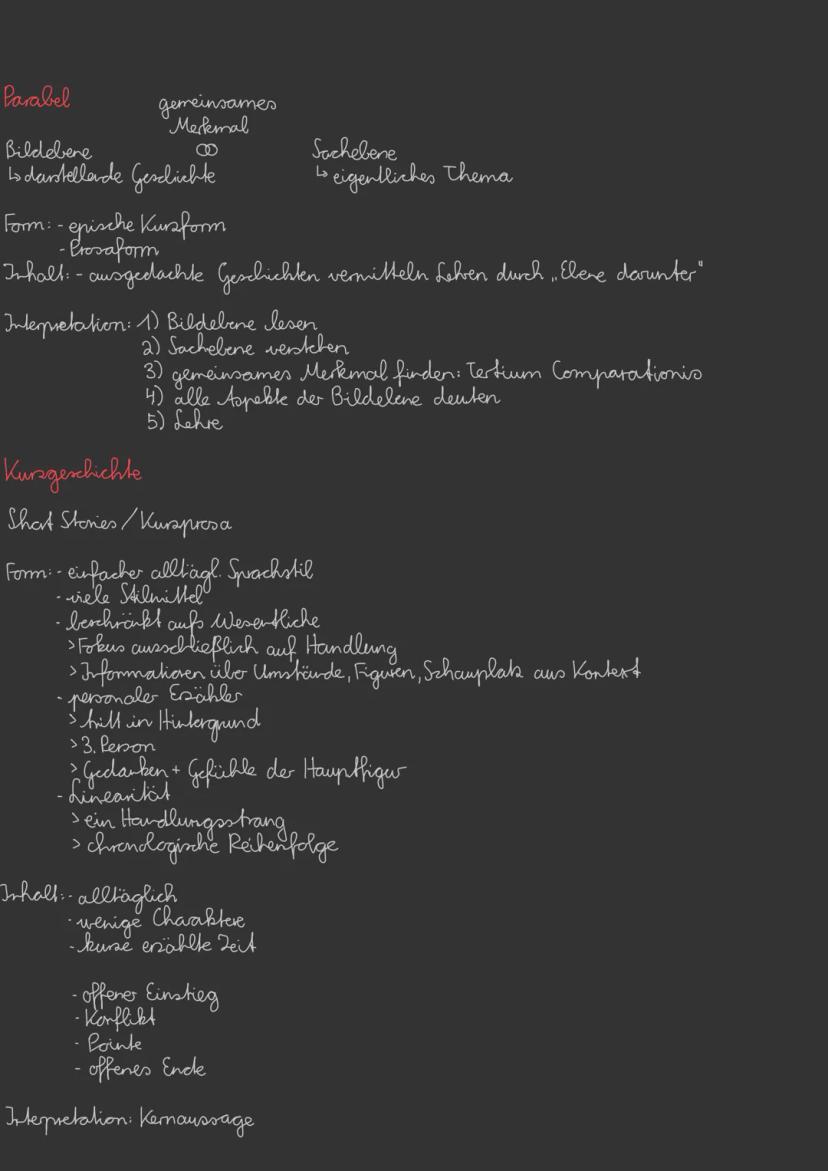 Parabel
gemeinsames
Merkmal
Bildebene ∞ Sachebene
↳ darstellende Geschichte ↳ eigentliches Thema
Form: - epische Kurzform
- Prosaform
Inhalt: - ausgedachte Geschichten vermitteln Lehren durch „Ebene darunter"
Interpretation: 1) Bildebene lesen
2) Sachebene verstehen
3) gemeinsames Merkmal finden: Tertium Comparationis
4) alle Aspekte der Bildebene deuten
5) Lehre
Kurzgeschichte
Short Stories / Kurzprosa
Form: - einfacher alltägl. Sprachstil
- viele Stilmittel
- beschränkt aufs Wesentliche
> Fokus ausschließlich auf Handlung
> Informationen über Umstände, Figuren, Schauplatz aus Kontext
- personaler Erzähler
> tritt in Hintergrund
> 3. Person
> Gedanken + Gefühle der Hauptfigur
- Linearität
> ein Handlungsstrang
> chronologische Reihenfolge
Inhalt: - alltäglich
- wenige Charaktere
- kurze erzählte Zeit
- offener Einstieg
- Konflikt
- Pointe
- offenes Ende
Interpretation: Kernaussage